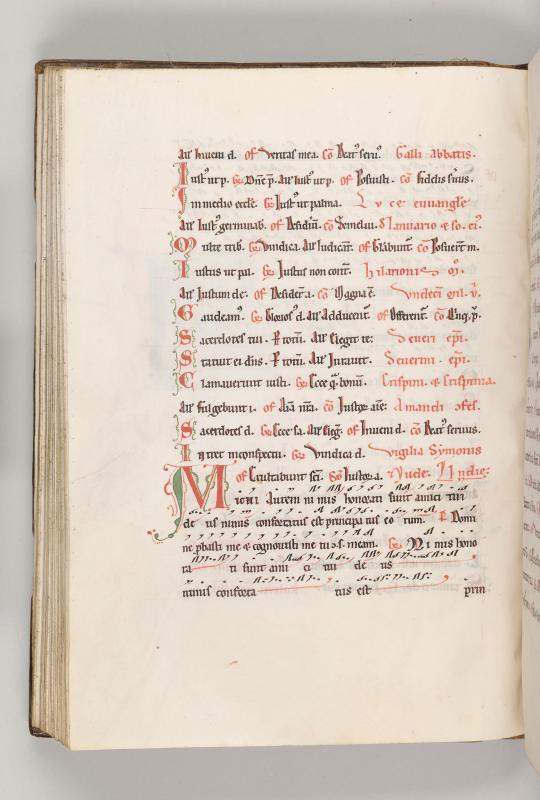 All' Inveni d. of Veritas mea. co Beat' servꝰ. Galli abbatis.
Iust' ut p. Dne p. All' Iust' ut p. of Posuisti. co Fidelis s'vus.
In medio eccle. Iust' ut palma. Luce euuangle
All' Iust' germinab. of Desidiu. co Semel iu. Ianuario & so. eiꝰ.
Multe trib. Vindica. All' Iudicant. of Glabunt. co Posuert m.
Iustus ut pal. Iustus non cont. hilarionis
All' Iustum de. of Desider a. co Magna e. Undeci mil. v.
Gaudeam'. Gloriosꝰ d. All' Adducent. of Offerent. co Quiq. p.
Sacerdotes tui. R totu. All' Elegit te. Seueri epi.
Statuit ei dns. R totu. All' Iurauit. Seuerini. epi.
Clamauerunt iusti. Ecce qa bonu. Crispini. & Crispinia.
All' Fulgebunt i. of Aia nra. co Iustor aie. Amandi ofes.
Sacerdotes d. Ecce sa. All' Eleg. of Inueni d. co Beat' seruus.
Intret inconspectu. Vindica d. Vigilia Symonis
of Exultabunt sci. co Iustor a. & Iude. In die.
Michi autem ni mis honorati sunt amici tui
de us nimis confortatus est principa tus eo rum. Domi
ne pbasti me & cognouisti me tu .s. meam. Ni mis hono
ra ti sunt ami ci tui de us
nimis conforta tus est prin